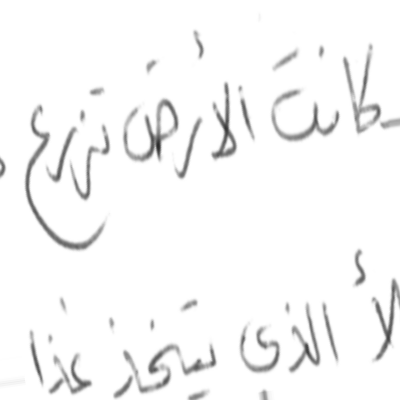 كانت الأرض تزرع
الذي يتخذ غذا